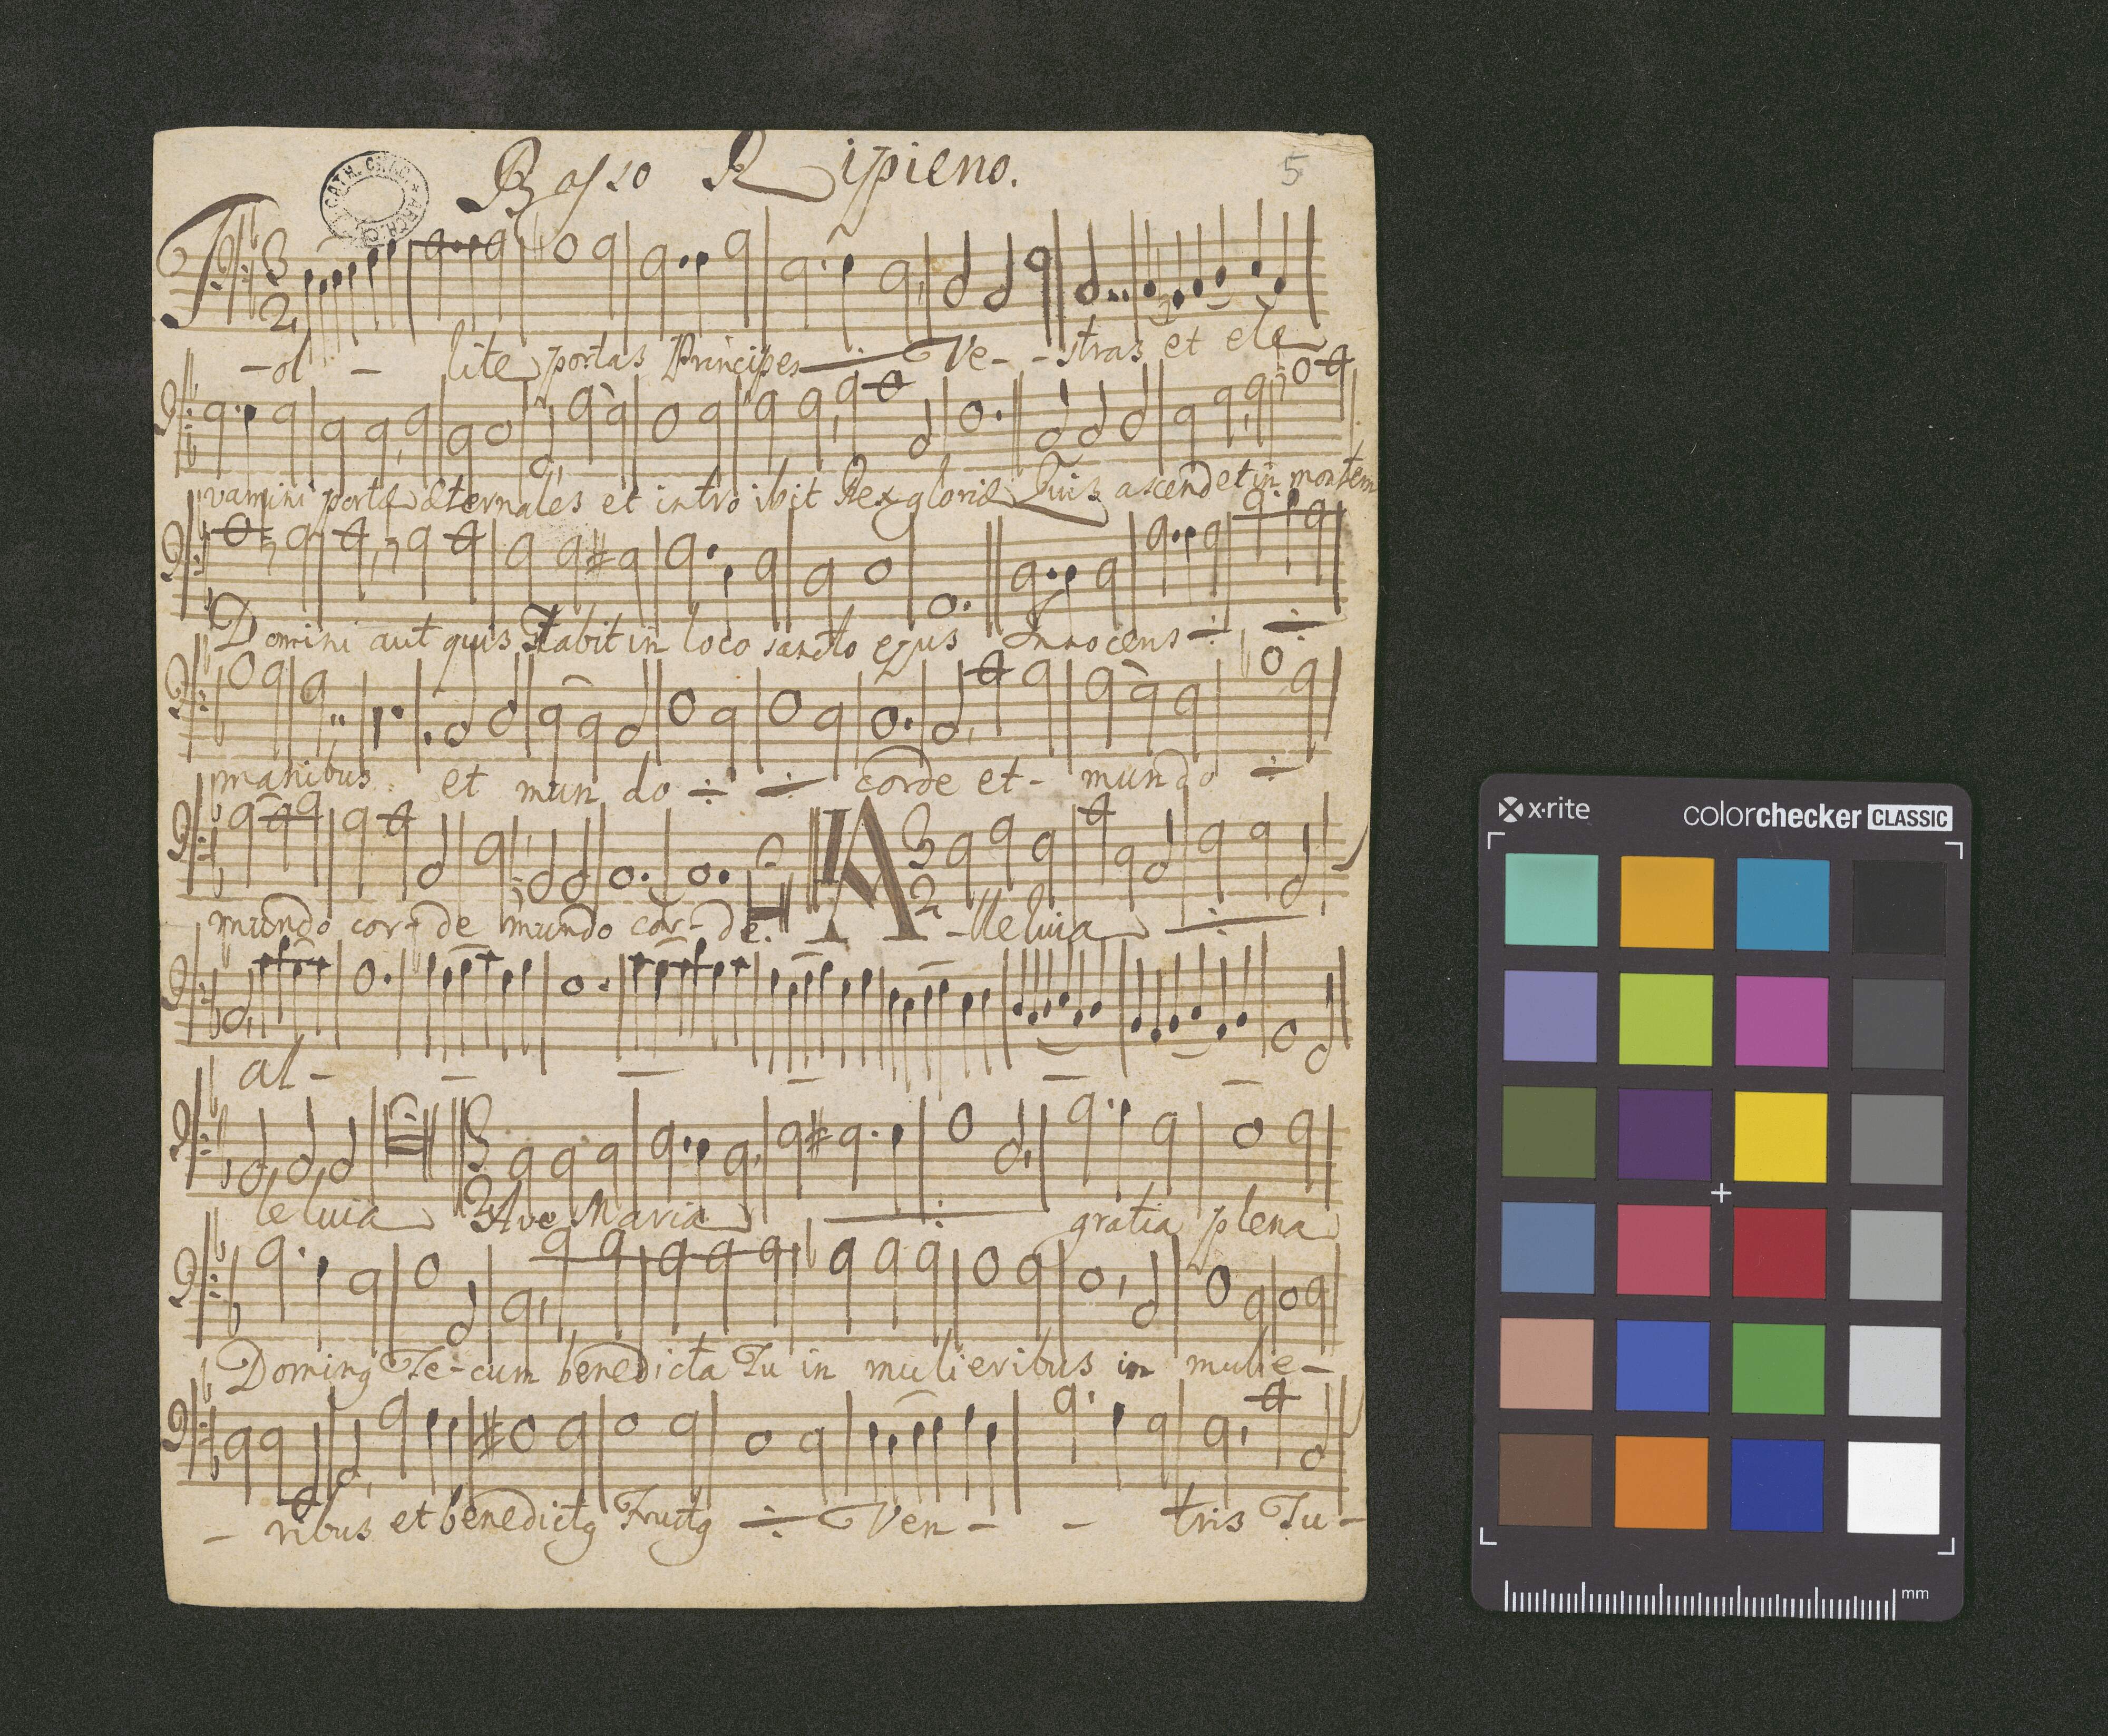 Basso Ripieno.
5
Tol - lite portas Principes Ve - stras et ele
vamini portæ æternales et intro ibit Rex gloriæ Quis ascendet in montem
Domini aut quis stabit in loco sancto ejus Innocens
manibus et mun do corde et - mundo
mundo cor - de mundo cor - de. A - lleluia
3 2
al -
leluia Ave Maria gratia plena
Doming Te - cum benedicta Tu in mulieribus in mulie -
- ribus et benedictg Fructg Ven - - tris Tu -
x·rite colorchecker CLASSIC
mm